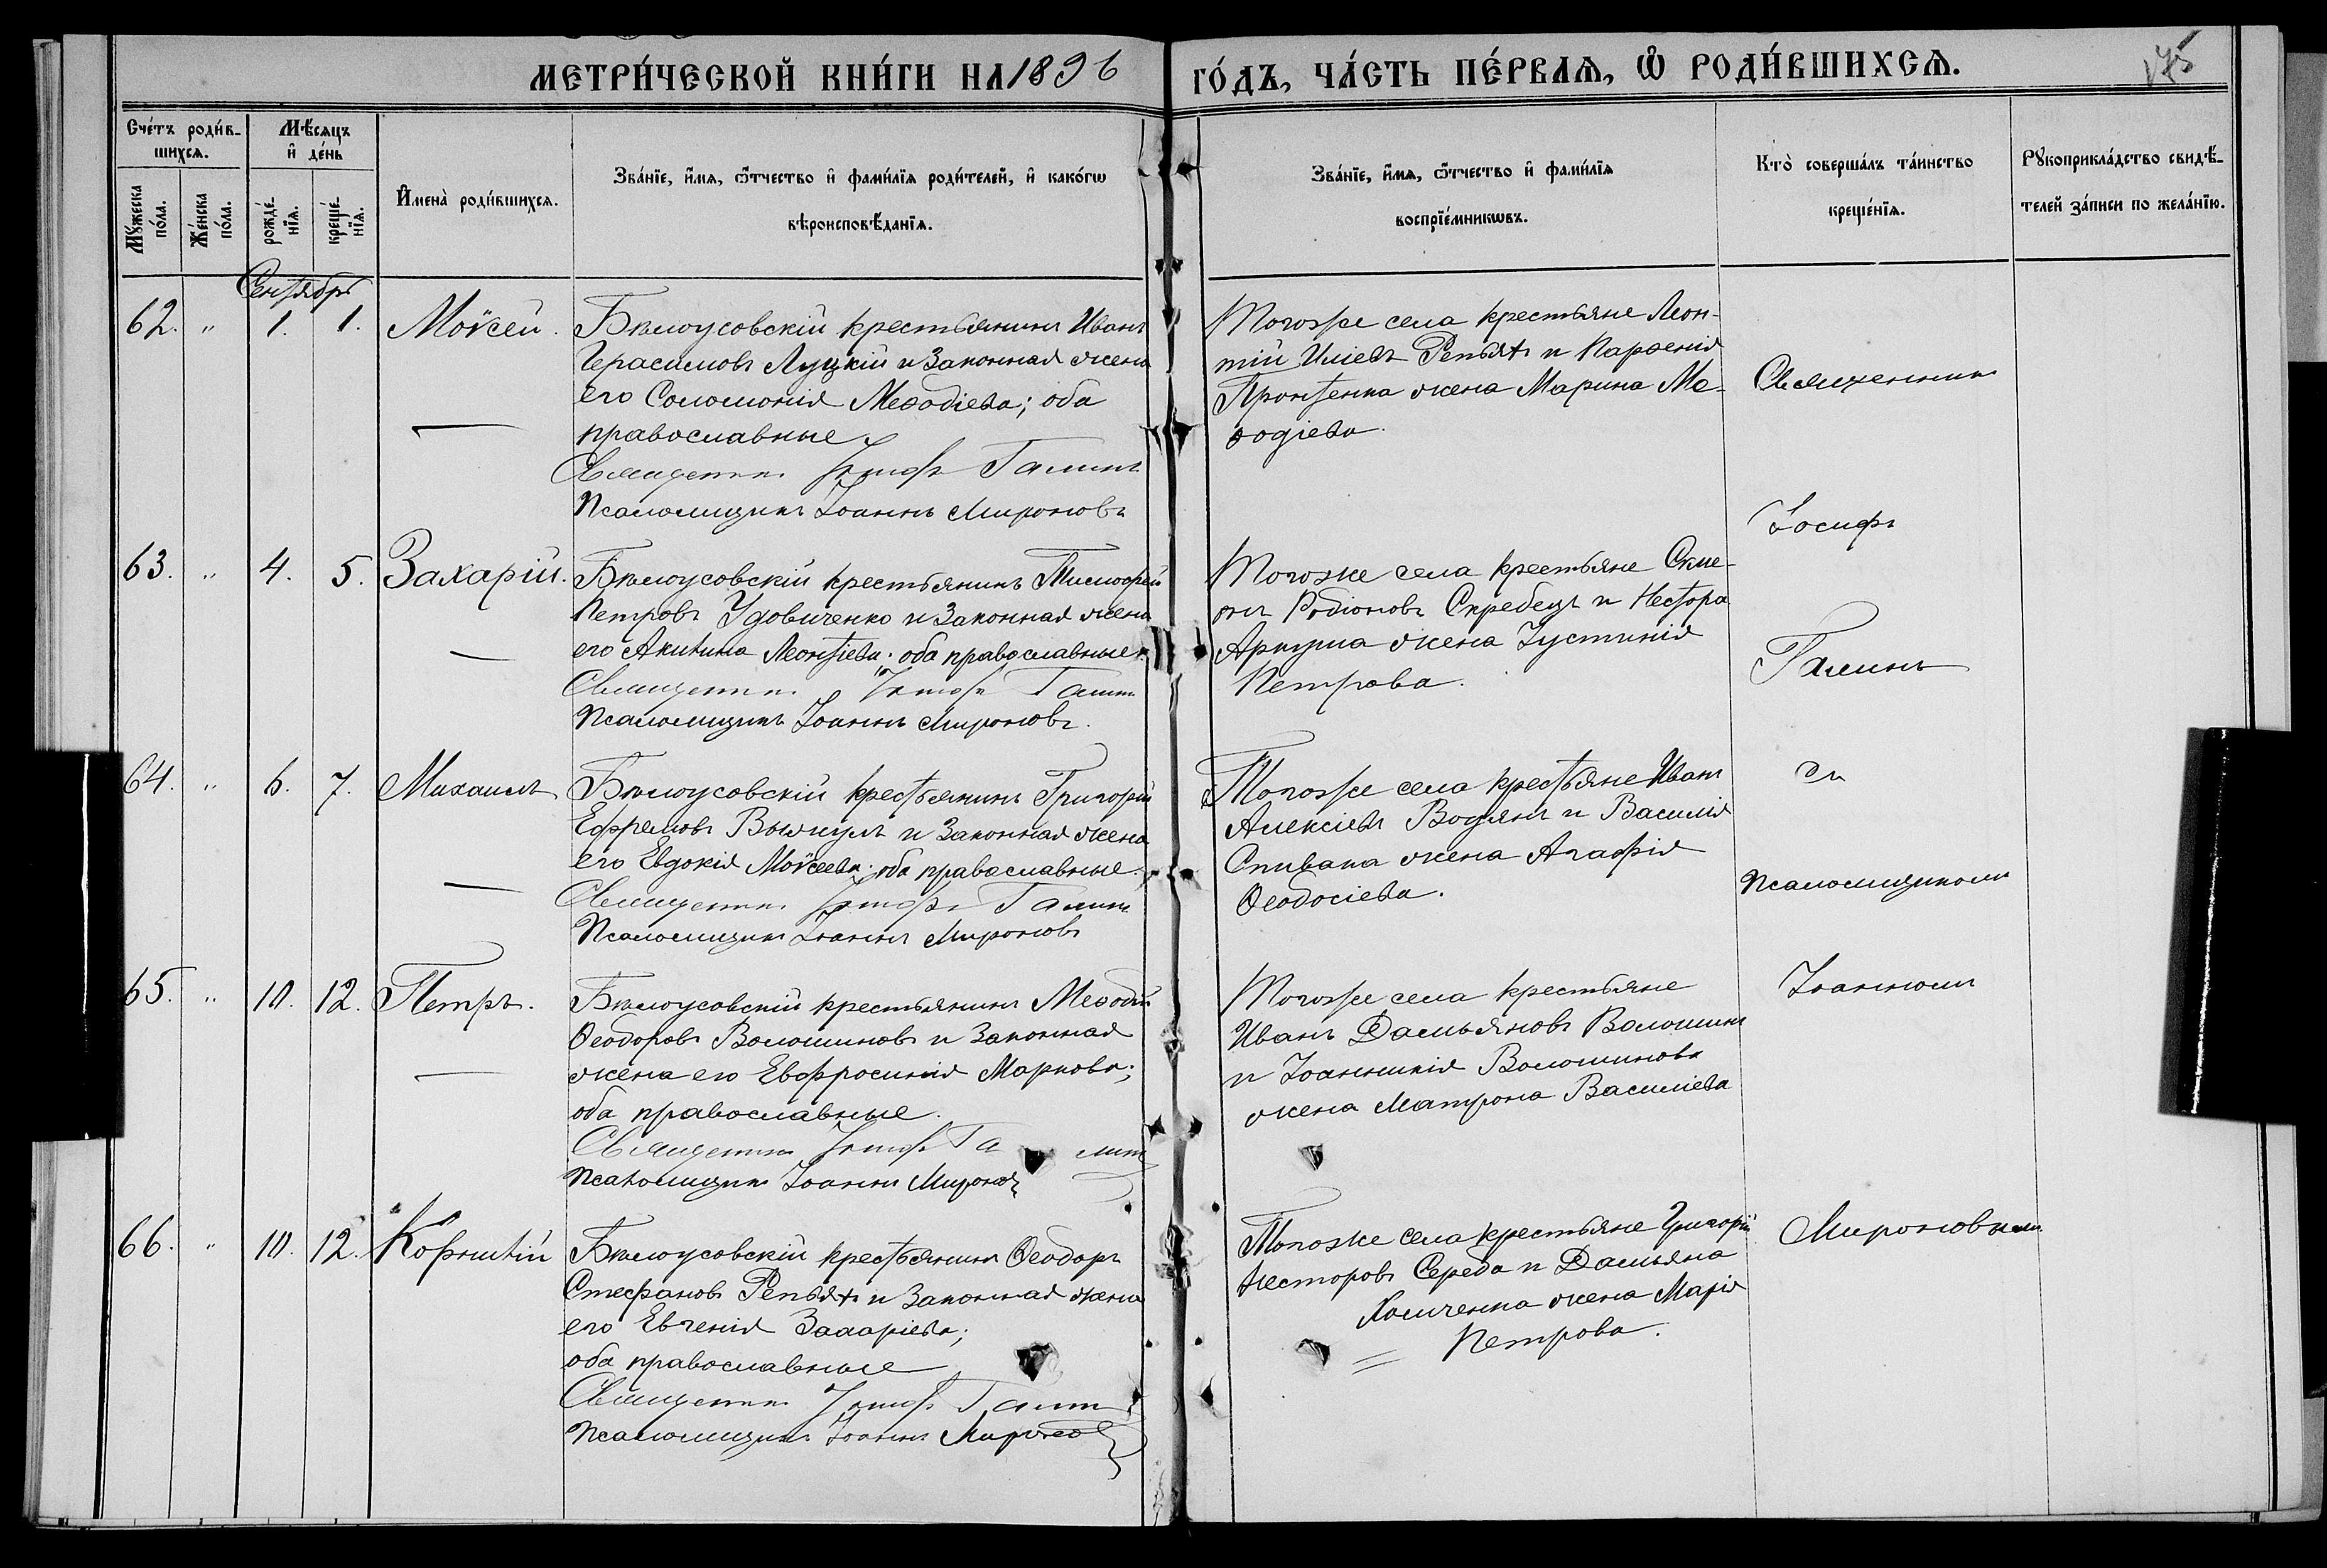 МЕТРИ́ЧЕСКОЙ КНИ́ГИ НА 1896
ГО́ДЪ, ЧА́СТЬ ПЕ́РВАЯ, Ѽ РОДИ́ВШИХСѦ.
175
Сче́тъ роди́в-
шихсѧ.
Мѣ́сяцъ
и҆ де́нь
Мꙋ́жеска
по́ла.
Же́нска
по́ла.
рожде́-
нїѧ.
креще́-
нїѧ.
И҆мена̀ роди́вшихсѧ.
Зва́нїе, и҆́мѧ, ѻ҆́тчество и҆ фами́лїѧ роди́телей, и҆ како́гѡ
вѣроисповѣ́данїѧ.
Зва́нїе, и҆́мѧ, ѻ҆́тчество и҆ фами́лїѧ
воспрїе́мникѡвъ.
Кто̀ соверша́лъ та́инство
креще́нїѧ.
Рꙋкоприкла́дство свидѣ́-
телей за́писи по жела́нїю.
Сентябрь
62. " 1. 1. Моѵсей.
Бѣлоусовскій крестьянинъ Иванъ
Герасимовъ Луцкій и законная жена
его Соломонія Меѳодіева; оба
православные.
Священникъ Іосифъ Галинъ
Псаломщикъ Іоаннъ Мироновъ
Тогоже села крестьяне Леон-
тій Иліевъ Репьяхъ и Парѳенія
Пронтенка жена Марина Ме-
ѳодіева.
Священник
Іосифъ
Галинъ
съ
псаломщикомъ
Іоанномъ
Мироновымъ
63. " 4. 5. Захарій.
Бѣлоусовскій крестьянинъ Тимоѳей
Петровъ Удовиченко и законная жена
его Акилина Леонтіева; оба православные.
Священникъ Іосифъ Галинъ
Псаломщикъ Іоаннъ Мироновъ.
Тогоже села крестьяне Симе-
онъ Родіоновъ Скребецъ и Нестора
жена Іустинія
Петрова.
64. " 6. 7. Михаилъ
Бѣлоусовскій крестьянинъ Григорій
Ефремовъ и законная жена
его Евдокія Моѵсеева; оба православные.
Священникъ Іосифъ Галинъ
Псаломщикъ Іоаннъ Мироновъ
Тогоже села крестьяне Иванъ
Алексіевъ Водянъ и Василія
Спивака жена Агафія
Ѳеодосіева.
65. " 10. 12. Петръ.
Бѣлоусовскій крестьянинъ Меѳодій
Ѳеодоровъ Волошиновъ и законная
жена его Евфросинія Маркова;
оба православные.
Священникъ Іосифъ Галинъ
Псаломщикъ Іоаннъ Мироновъ
Тогоже села крестьяне
Иванъ Дамьяновъ Волошинъ
и Іоанникія Волошинова
жена Матрона Василіева
66. " 10. 12. Корнилій
Бѣлоусовскій крестьянинъ Ѳеодоръ
Стефановъ Репьяхъ и законная жена
его Евгенія Захаріева;
оба православные
Священникъ Іосифъ Галинъ
Псаломщикъ Іоаннъ Мироновъ
Тогоже села крестьяне Григорій
Несторовъ Середа и Дамьяна
жена Марія
Петрова.